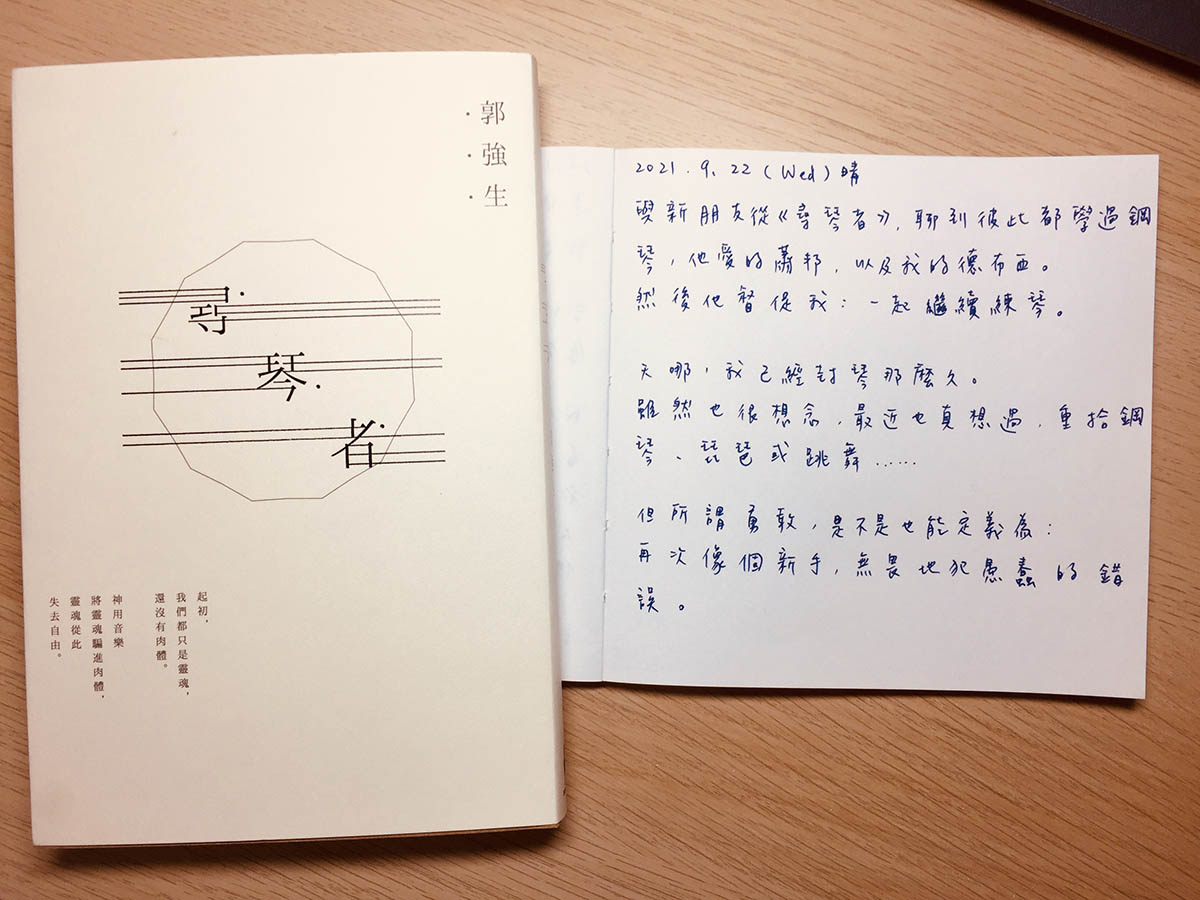 郭強生
尋琴者
起初，
我們都只是靈魂，
還沒有肉體。
神用音樂
將靈魂騙進肉體，
靈魂從此
失去自由。
2021.9.22 (Wed) 晴
與新朋友從《尋琴者》，聊到彼此都學過鋼
琴，他愛的蕭邦，以及我的德布西。
然後他督促我：一起繼續練琴。
天哪，我已經封琴那麼久。
雖然也很想念，最近也真想過，重拾鋼
琴、琵琶或跳舞……
但所謂勇敢，是不是也能定義為：
再次像個新手，無畏地犯愚蠢的錯
誤。